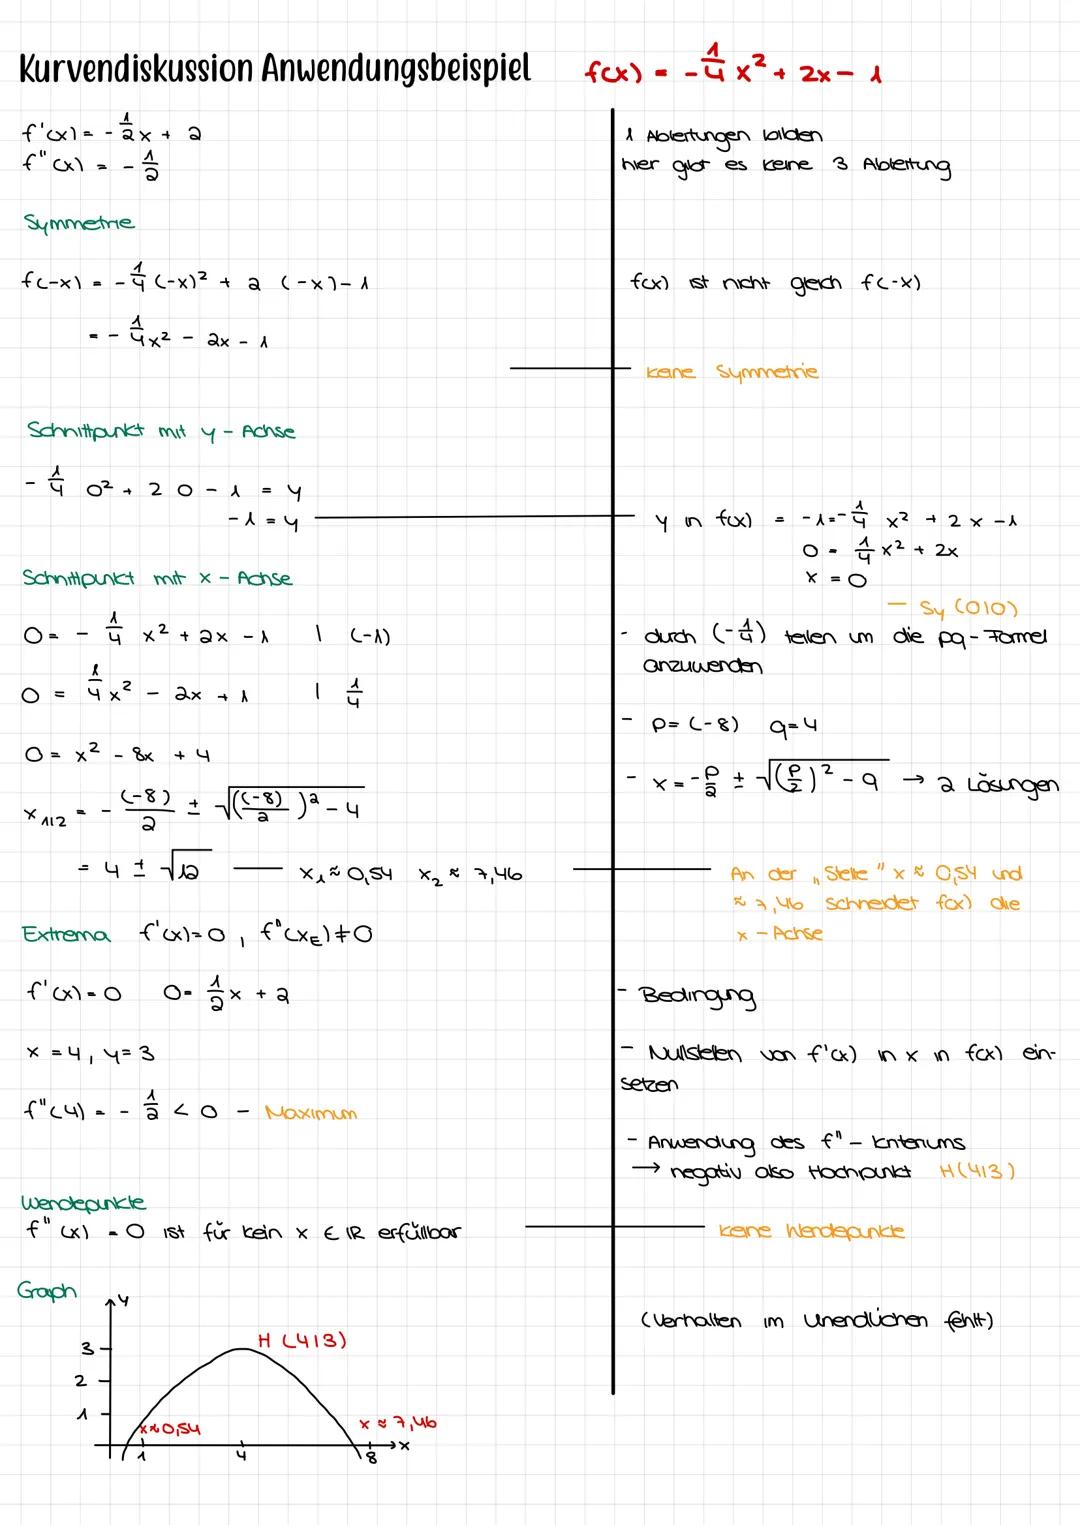 Kurvendiskussion Anwendungsbeispiel f(x) = -1/4 x² + 2x - 1
f'(x) = - 1/2 x + 2
f"(x) = - 1/2
1 Ableitungen bilden
hier gibt es keine 3 Ableitung
Symmetrie
f(-x) = - 1/4 (-x)² + 2 (-x) - 1
= - 1/4 x² - 2x - 1
f(x) ist nicht gleich f(-x)
keine Symmetrie
Schnittpunkt mit y - Achse
- 1/4 0² + 2 0 - 1 = y
-1 = y
y in f(x) = -1 = - 1/4 x² + 2x - 1
0 = 1/4 x² + 2x
x = 0
— Sy (0|0)
Schnittpunkt mit x - Achse
0 = - 1/4 x² + 2x - 1 | (-1)
0 = 1/4 x² - 2x + 1 | 1/4
0 = x² - 8x + 4
x 1/2 = - (-8)/2 ± √((-8)/2)² - 4
= 4 ± √12 — x₁ ≈ 0,54 x₂ ≈ 7,46
- durch (-1/4) teilen um die pq-Formel
anzuwenden
- p = (-8) q = 4
- x = - p/2 ± √(p/2)² - q → 2 Lösungen
An der „Stelle" x ≈ 0,54 und
≈ 7,46 schneidet f(x) die
x - Achse
Extrema f'(x) = 0 , f"(xE) ≠ 0
f'(x) = 0 0 = 1/2 x + 2
x = 4, y = 3
f"(4) = - 1/2 < 0 - Maximum
- Bedingung
- Nullstellen von f'(x) in x in f(x) ein-
setzen
- Anwendung des f" - Kriteriums
→ negativ also Hochpunkt H(4|3)
Wendepunkte
f"(x) = 0 ist für kein x ∈ ℝ erfüllbar
keine Wendepunkte
Graph
(Verhalten im Unendlichen fehlt)
y
3
2
1
H (4|3)
x≈0,54
x ≈ 7,46
x
1
4
8